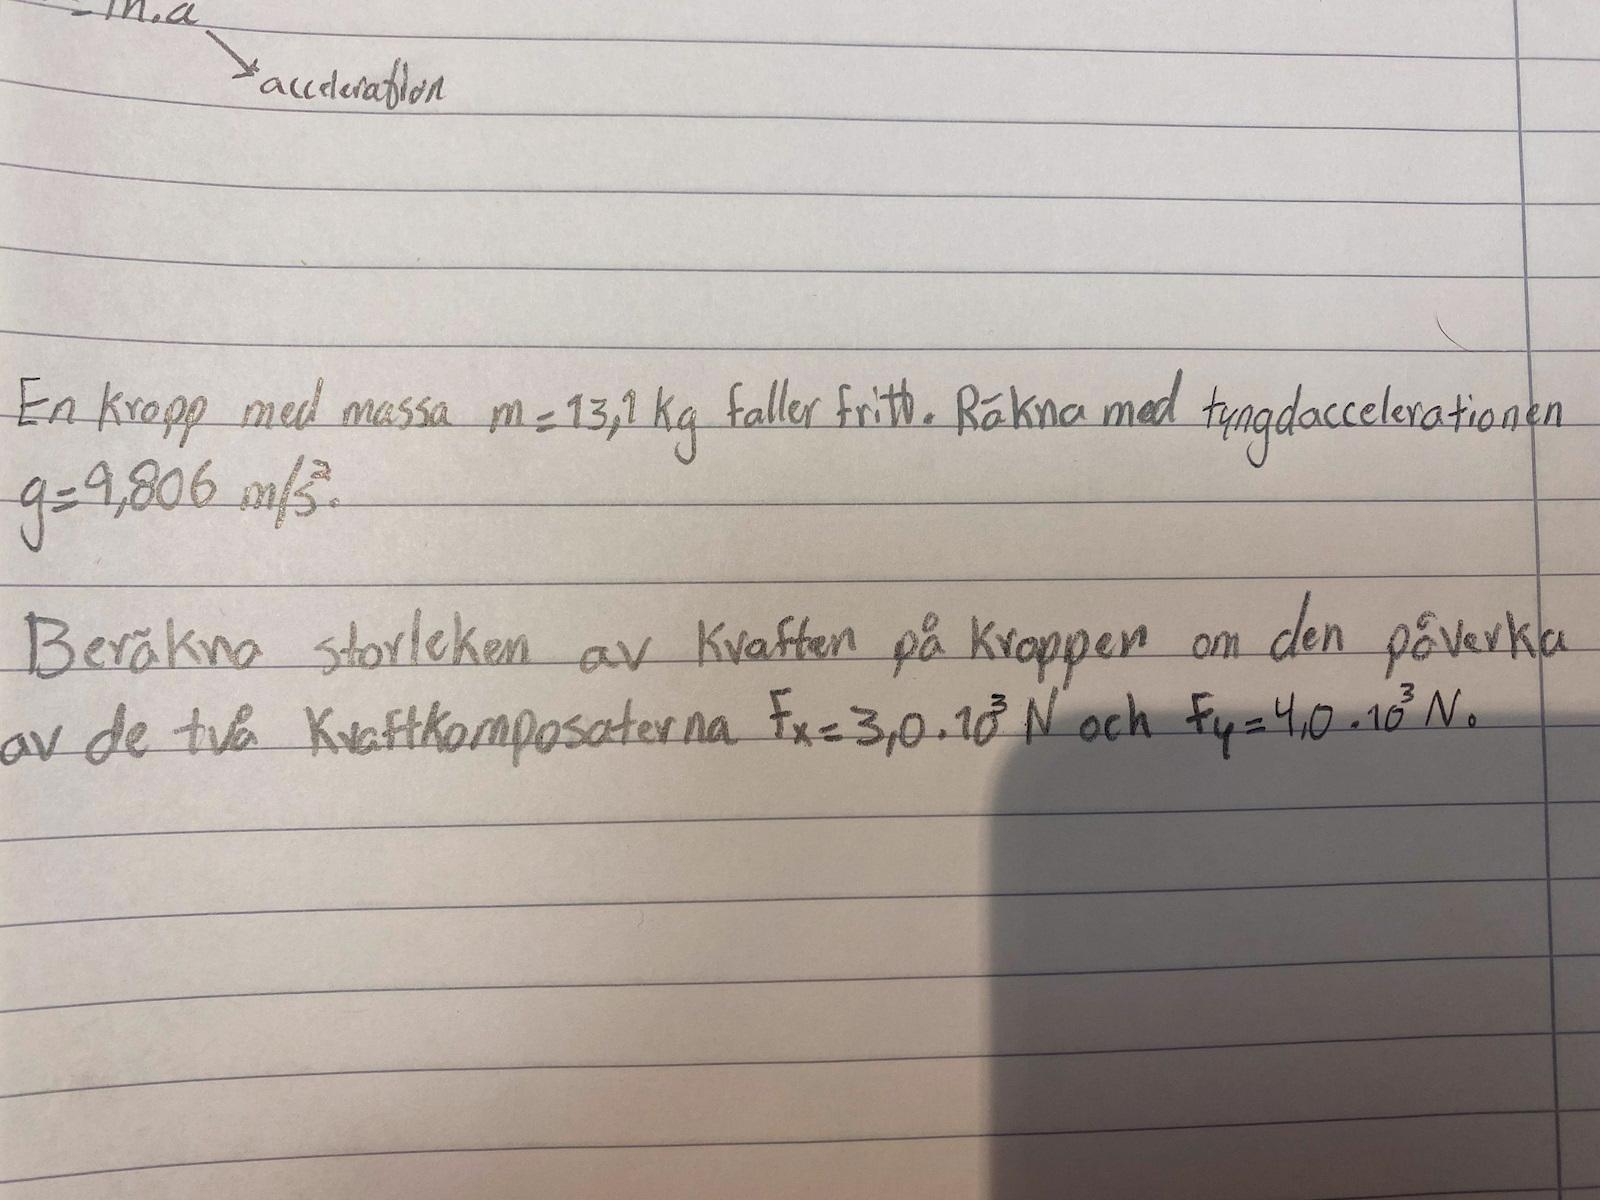 = m.a
acceleration
En kropp med massa m=13,1 kg faller fritt. Räkna med tyngdaccelerationen
g=9,806 m/s².
Beräkna storleken av kraften på kroppen om den påverka
av de två Kraftkomposaterna Fx=3,0.10³ N och Fy=4,0.10³ N.